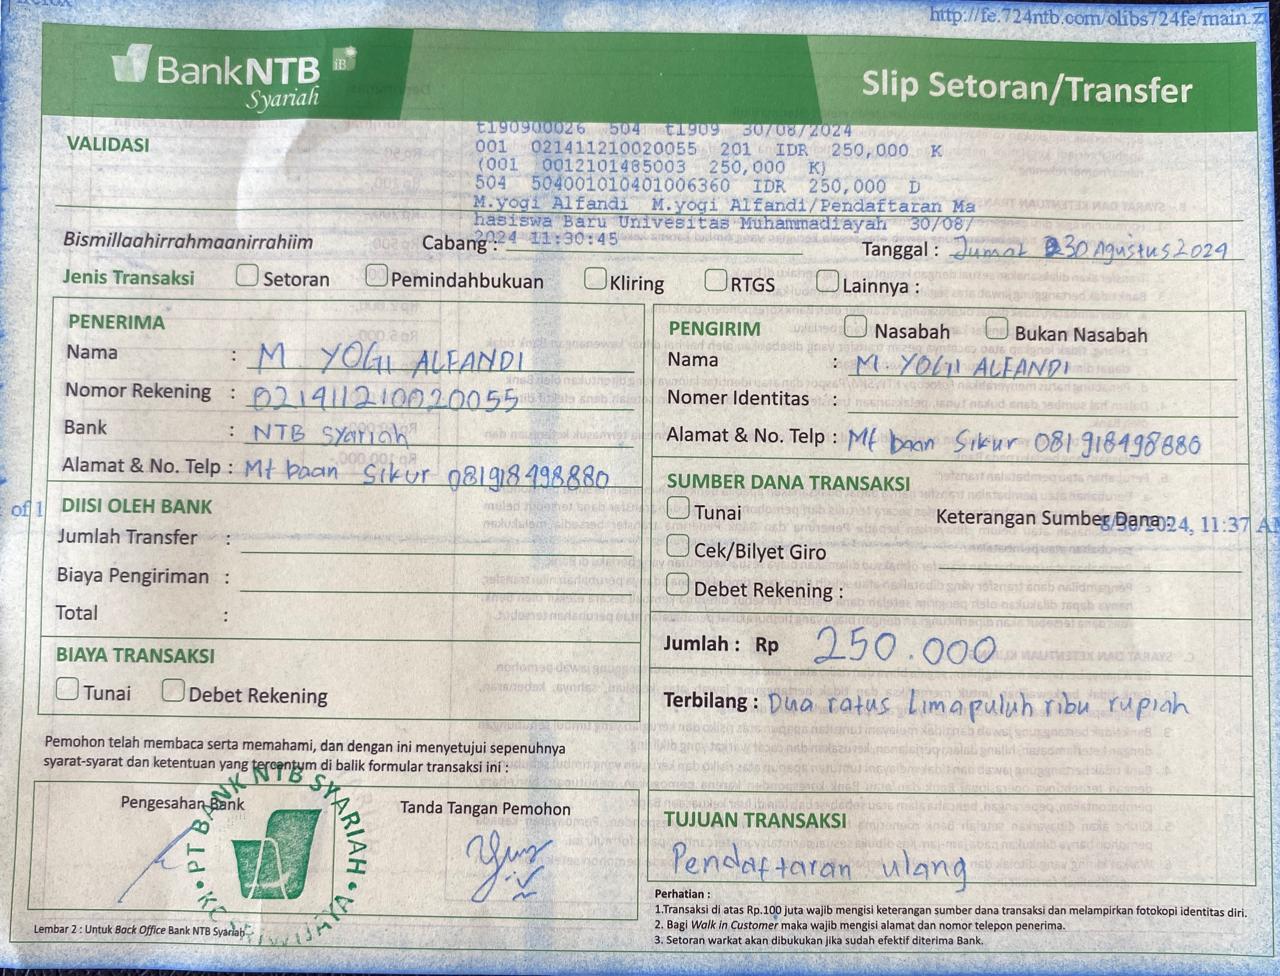 http://fe.724ntb.com/olibs724fe/main.z
BankNTB iB
Syariah
Slip Setoran/Transfer
VALIDASI
t190900026 504 t1909 30/08/2024
001 021411210020055 201 IDR 250,000 K
(001 0012101485003 250,000 K)
504 504001010401006360 IDR 250,000 D
M.yogi Alfandi M.yogi Alfandi/Pendaftaran Ma
hasiswa Baru Univesitas Muhammadiayah 30/08/
2024 11:30:45
Bismillaahirrahmaanirrahiim
Cabang :
Tanggal : Jumat 30 Agustus 2024
Jenis Transaksi Setoran Pemindahbukuan Kliring RTGS Lainnya :
PENERIMA
Nama : M YOGI ALFANDI
Nomor Rekening : 021411210020055
Bank : NTB Syariah
Alamat & No. Telp : Mt baan Sikur 081918498880
PENGIRIM Nasabah Bukan Nasabah
Nama : M. YOGI ALFANDI
Nomer Identitas :
Alamat & No. Telp : Mt baan Sikur 081918498880
of 1
DIISI OLEH BANK
Jumlah Transfer :
Biaya Pengiriman :
Total :
SUMBER DANA TRANSAKSI
Tunai
Keterangan Sumber Dana :
8/30/2024, 11:37 A
Cek/Bilyet Giro
Debet Rekening :
BIAYA TRANSAKSI
Tunai Debet Rekening
Jumlah : Rp 250.000
Terbilang : Dua ratus limapuluh ribu rupiah
Pemohon telah membaca serta memahami, dan dengan ini menyetujui sepenuhnya
syarat-syarat dan ketentuan yang tercantum di balik formular transaksi ini :
Pengesahan Bank
Tanda Tangan Pemohon
PT BANK NTB SYARIAH
TUJUAN TRANSAKSI
Pendaftaran ulang
Perhatian :
1.Transaksi di atas Rp.100 juta wajib mengisi keterangan sumber dana transaksi dan melampirkan fotokopi identitas diri.
2. Bagi Walk in Customer maka wajib mengisi alamat dan nomor telepon penerima.
3. Setoran warkat akan dibukukan jika sudah efektif diterima Bank.
Lembar 2 : Untuk Back Office Bank NTB Syariah